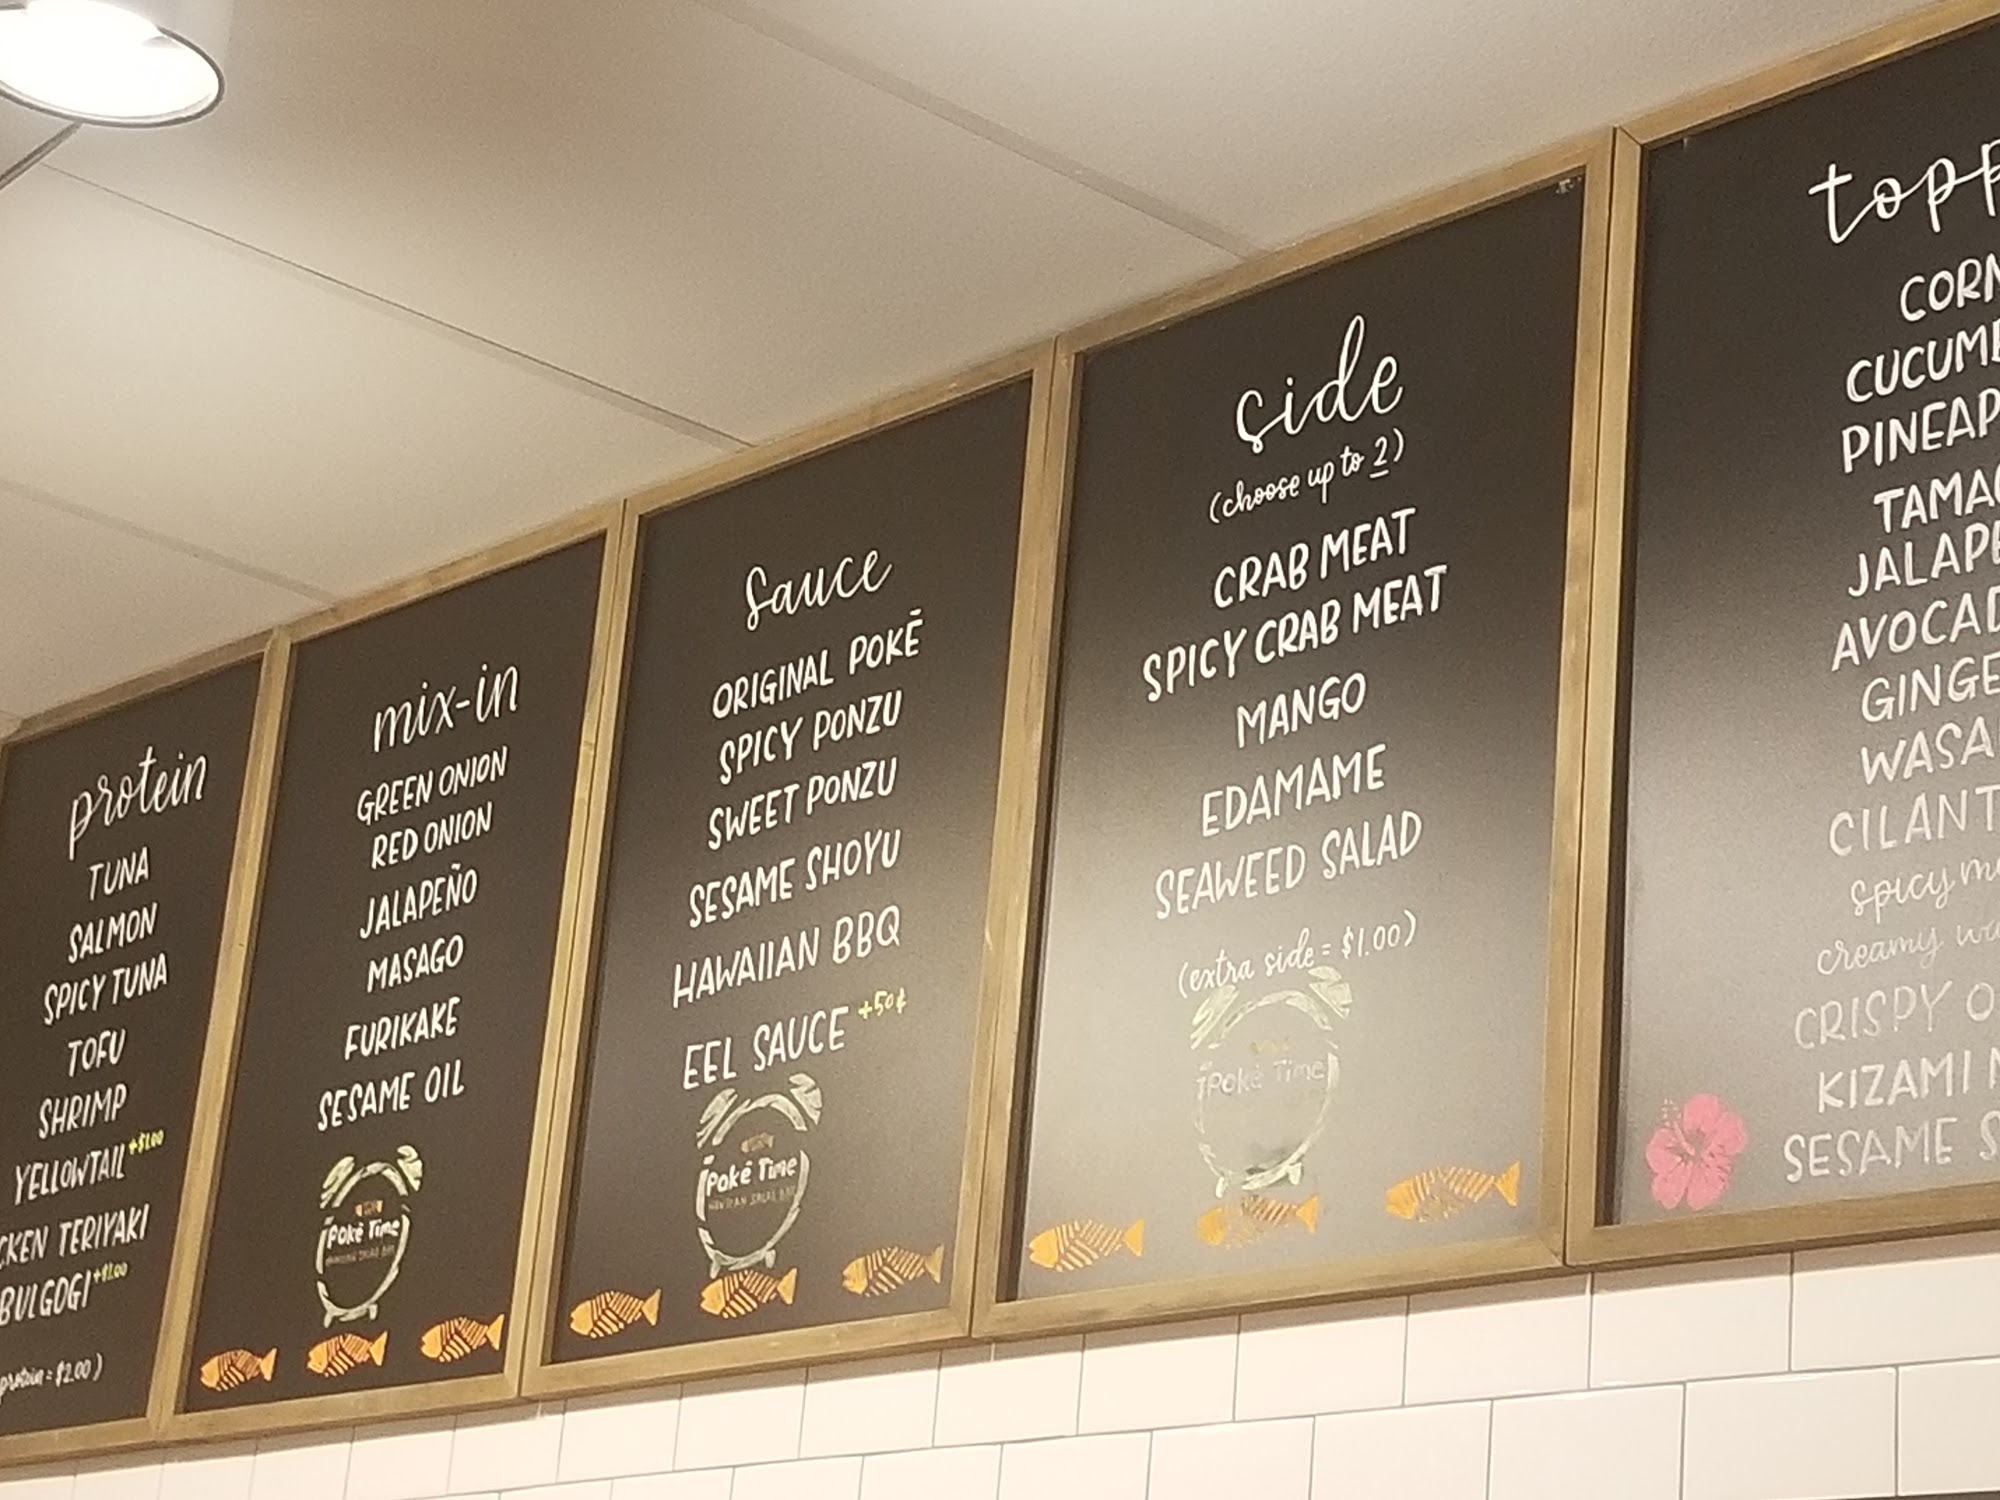 protein
TUNA
SALMON
SPICY TUNA
TOFU
SHRIMP
YELLOWTAIL +$1.00
CKEN TERIYAKI
BULGOGI +$1.00
protein = $2.00)
mix-in
GREEN ONION
RED ONION
JALAPEÑO
MASAGO
FURIKAKE
SESAME OIL
Poké Time
HAWAIIAN SALAD BAR
sauce
ORIGINAL POKĒ
SPICY PONZU
SWEET PONZU
SESAME SHOYU
HAWAIIAN BBQ
EEL SAUCE +50¢
Poké Time
HAWAIIAN SALAD BAR
side
(choose up to 2)
CRAB MEAT
SPICY CRAB MEAT
MANGO
EDAMAME
SEAWEED SALAD
(extra side = $1.00)
Poké Time
topp
CORN
CUCUMB
PINEAP
TAMAG
JALAPE
AVOCAD
GINGE
WASA
CILANT
spicy m
creamy wa
CRISPY O
KIZAMI N
SESAME S